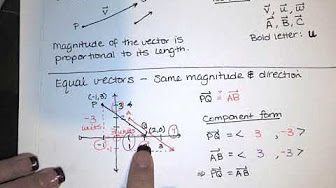 v⃗, u⃗, w⃗
A⃗, B⃗, C⃗
P
v⃗
Bold letter: u
Magnitude of the vector is
proportional to its length.
Equal vectors – Same magnitude & direction
(-1,3)
P
PQ⃗ = AB⃗
-3
units
(2,0)
Component form
PQ⃗ = < 3, -3 >
AB⃗ = < 3, -3 >
⇒ PQ⃗ = AB⃗